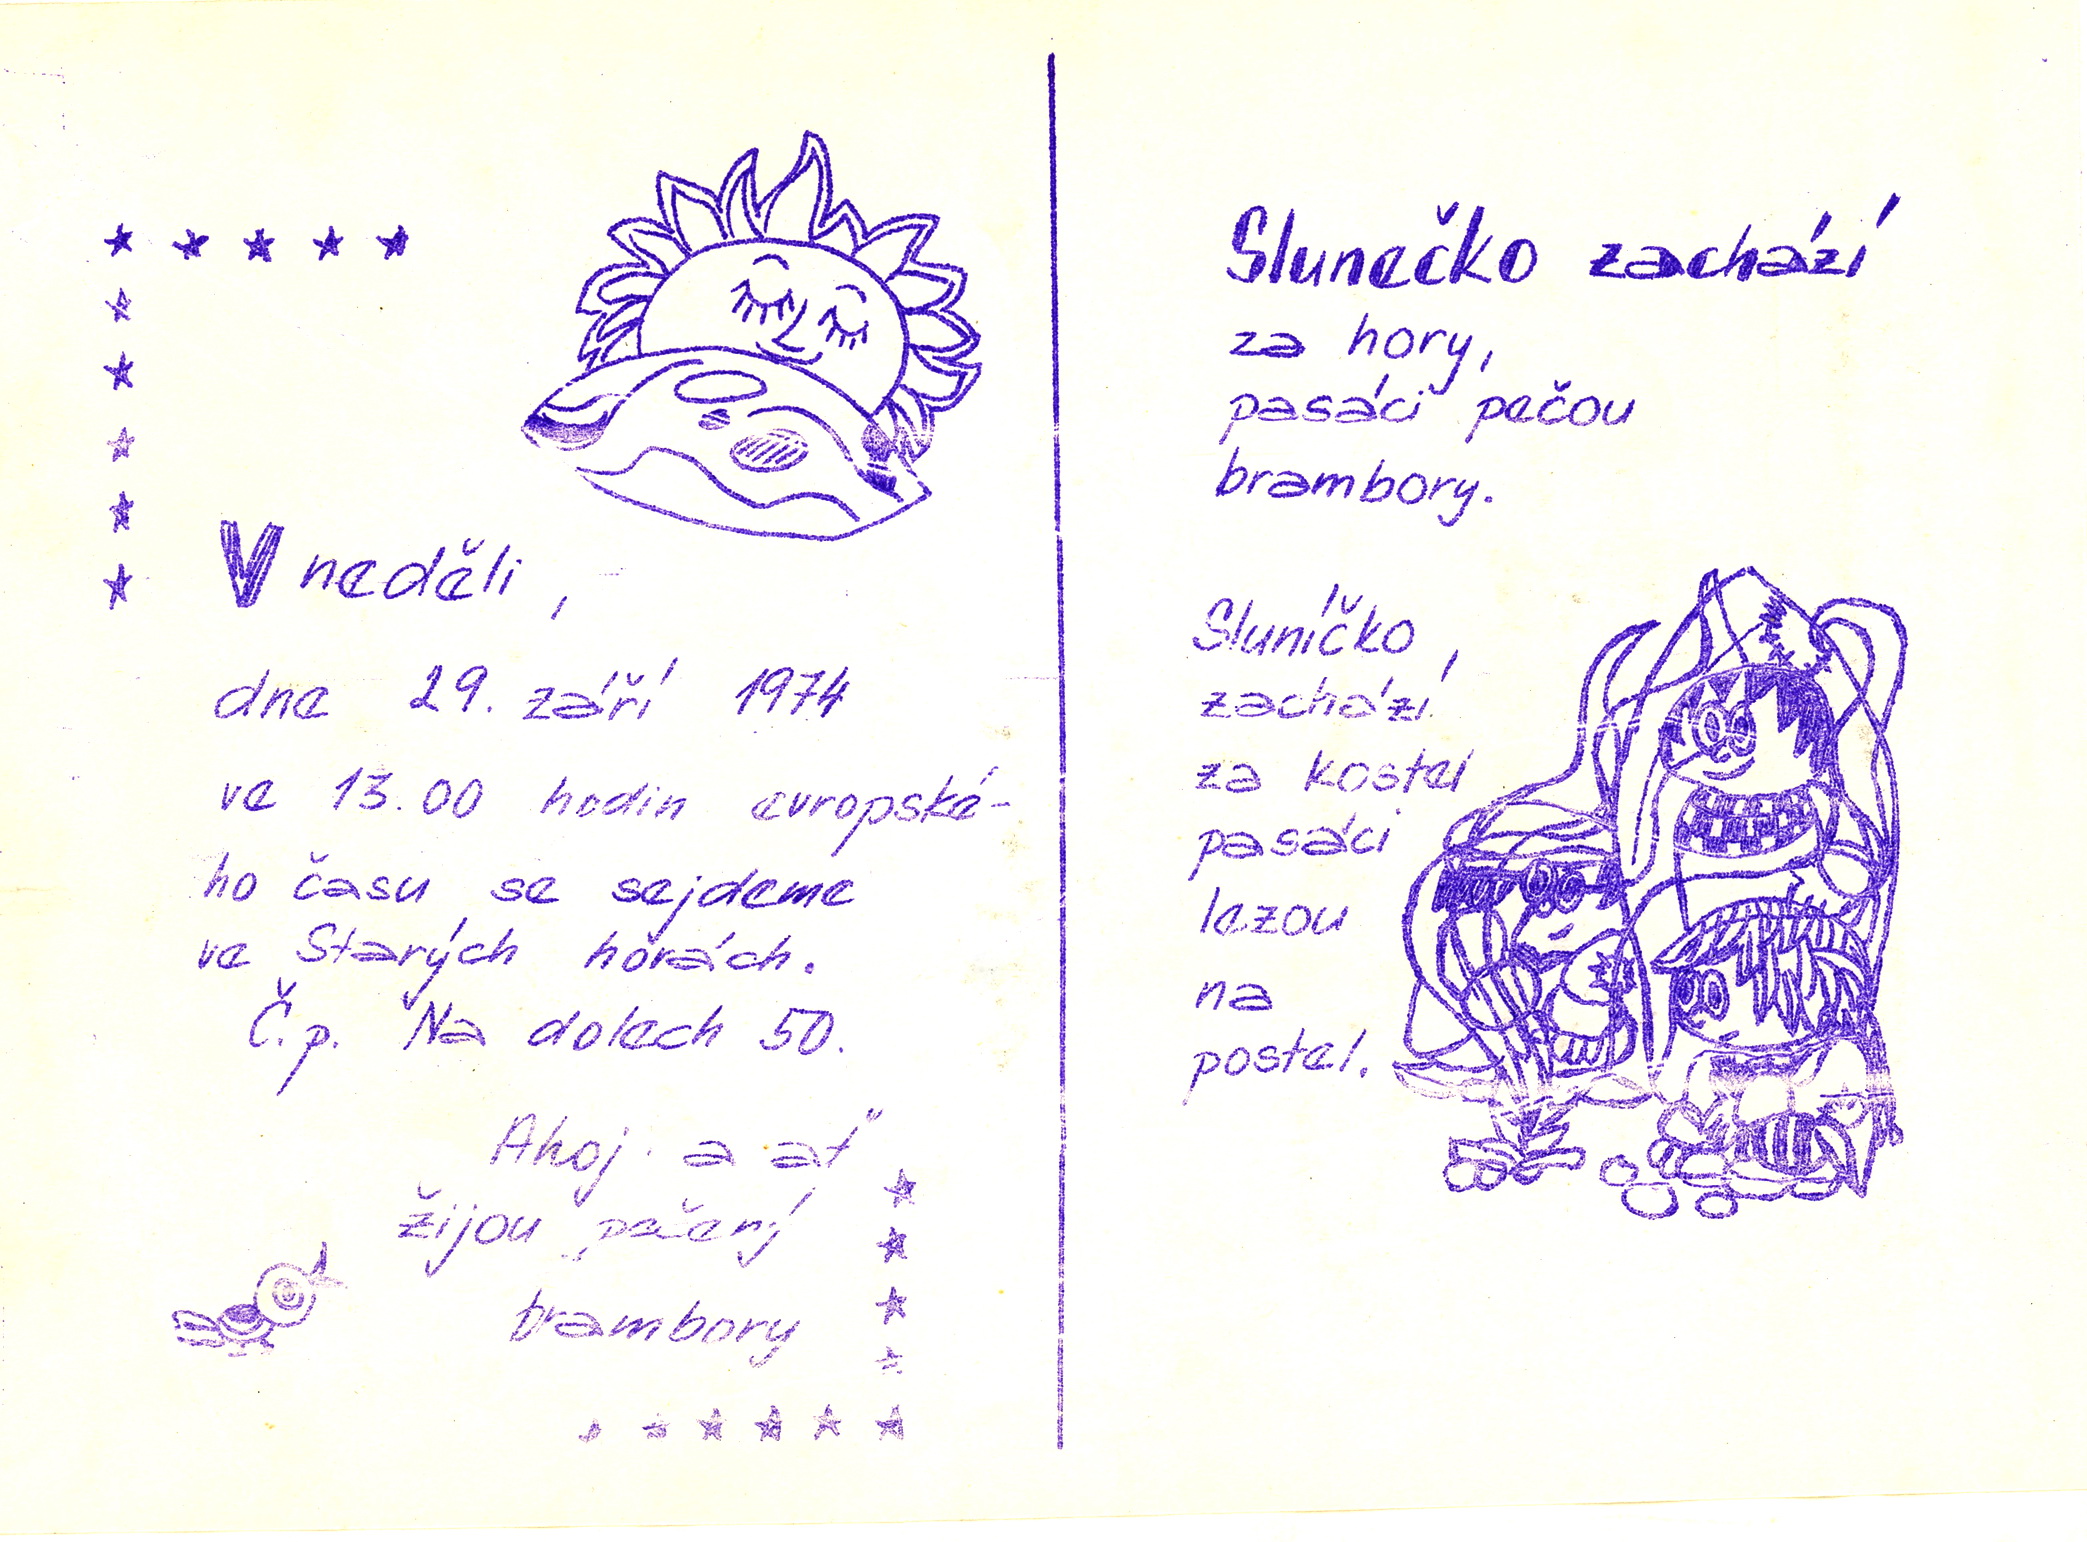 V neděli,
dne 29. září 1974
ve 13.00 hodin evropské-
ho času se sejdeme
ve Starých horách.
Č.p. Na dolech 50.
Ahoj a ať
žijou pečený
brambory
Slunečko zachází
za hory,
pasáci pečou
brambory.
Sluníčko,
zachází
za kostel
pasáci
lezou
na
postel.